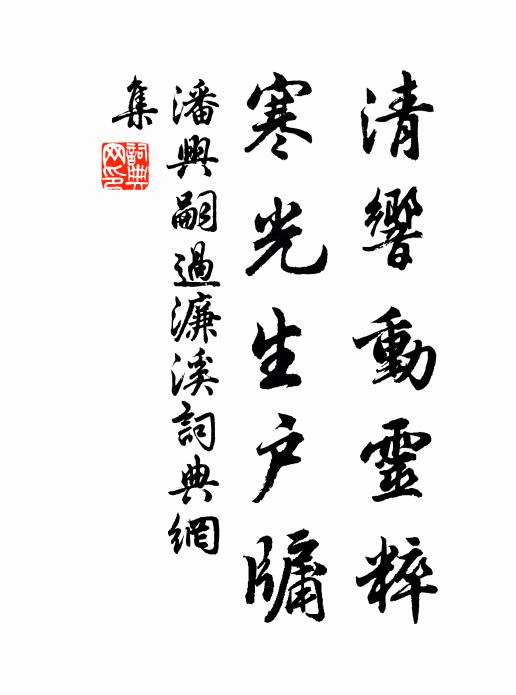 清響動靈粹
寒光生户牗
潘興嗣過濂溪詞典網
集
詞典網印